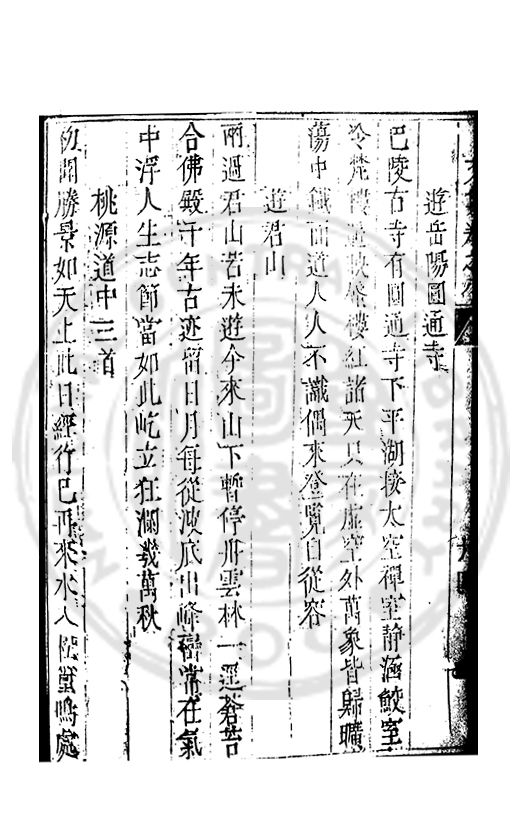 遊岳陽圓通寺
巴陵古寺有圓通寺下平湖接太空禪室静涵鮫室
冷梵樓紅諸天只在虛空外萬象皆歸曠
蕩中鐵面道人人不識偶來登覽自從容
遊君山
兩過君山若未遊今來山下暫停舟雲林一逕蒼苔
合佛殿千年古迹留日月每從波底出峰巒常在氣
中浮人生志節當如此屹立狂瀾幾萬秋
桃源道中三首
初聞勝景如天上此日經行已再來水人鳴處